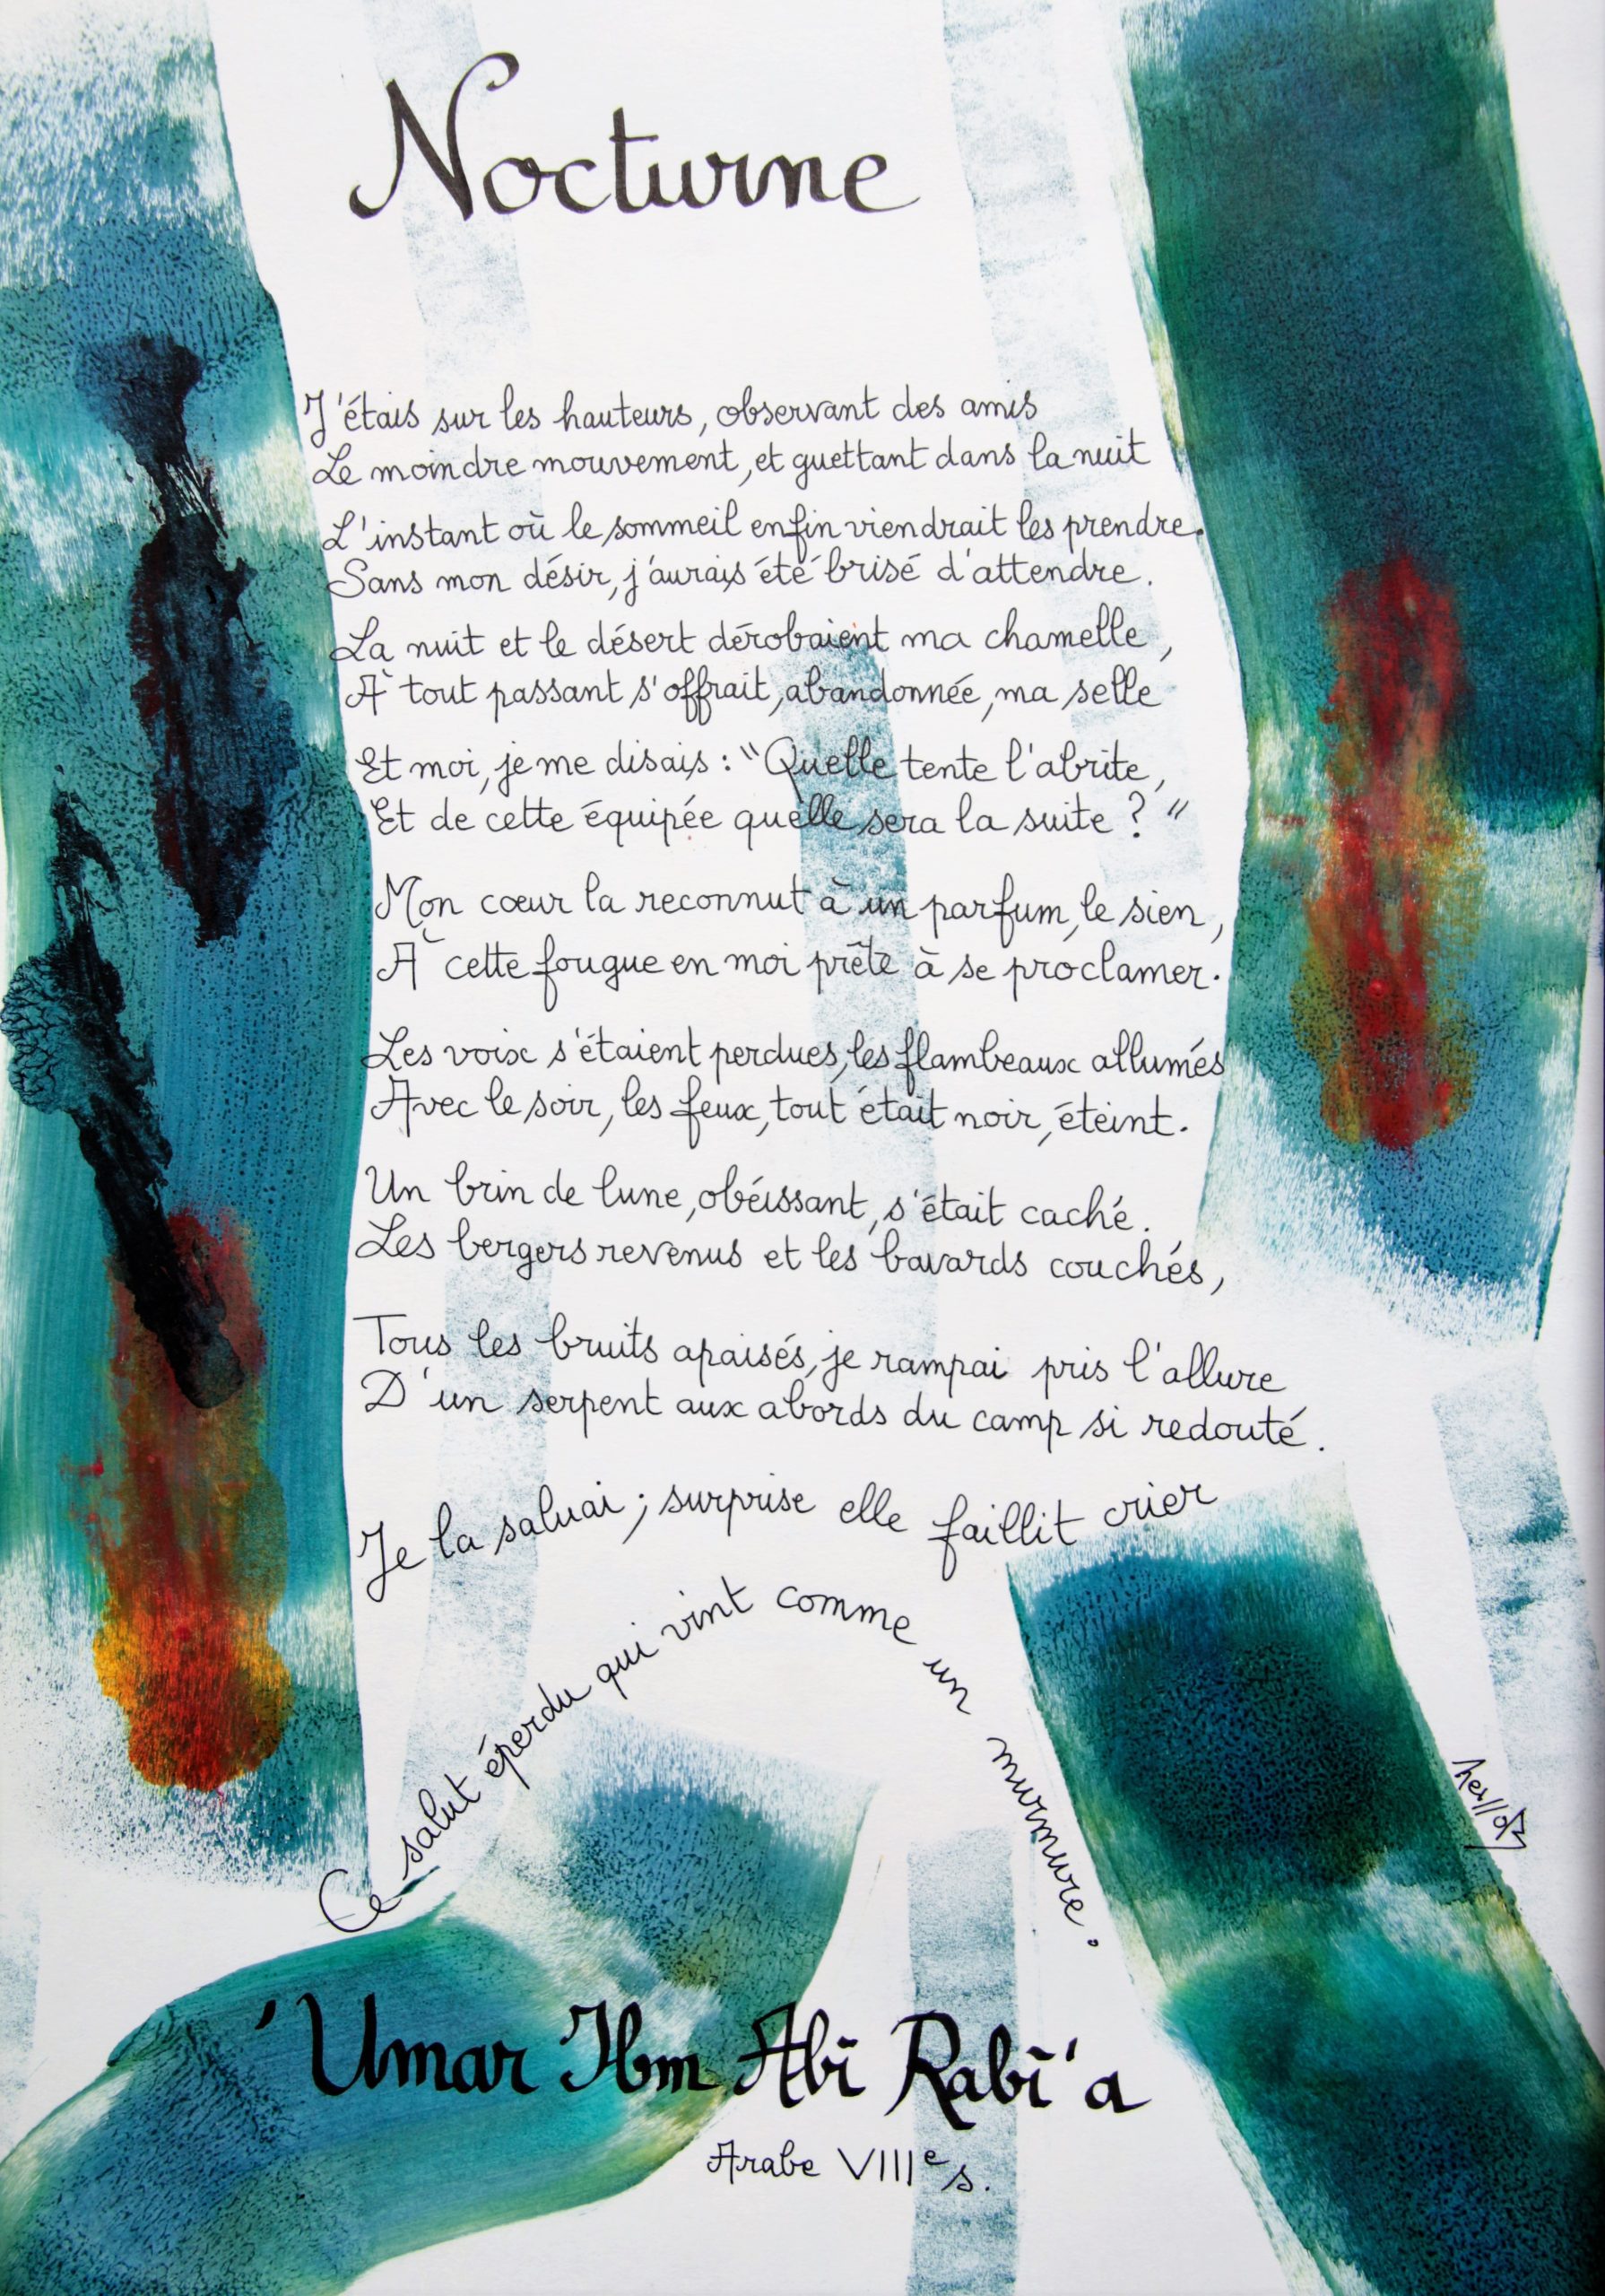 Nocturne
J'étais sur les hauteurs, observant des amis
Le moindre mouvement, et guettant dans la nuit
L'instant où le sommeil enfin viendrait les prendre.
Sans mon désir, j'aurais été brisé d'attendre.
La nuit et le désert dérobaient ma chamelle,
À tout passant s'offrait, abandonnée, ma selle
Et moi, je me disais : "Quelle tente l'abrite,
Et de cette équipée quelle sera la suite ? "
Mon cœur la reconnut à un parfum, le sien,
À cette fougue en moi prête à se proclamer.
Les voix s'étaient perdues, les flambeaux allumés
Avec le soir, les feux, tout était noir, éteint.
Un brin de lune, obéissant, s'était caché.
Les bergers revenus et les bavards couchés,
Tous les bruits apaisés, je rampai pris l'allure
D'un serpent aux abords du camp si redouté.
Je la saluai ; surprise elle faillit crier
Ce salut éperdu qui vint comme un murmure.
'Umar Ibm Abī Rabī'a
Arabe VIIIe s.